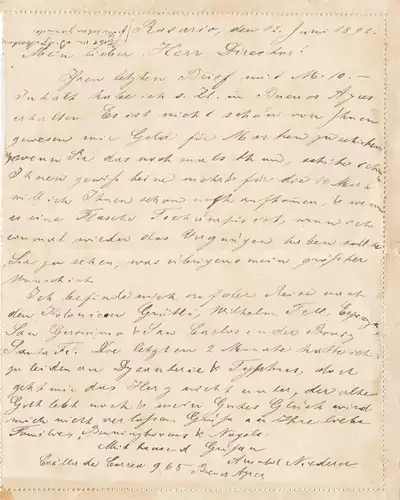 Rosario, den 12. Juni 1892.
Mein lieber Herr Director!
Ihren letzten Brief mit M. 10.–
Inhalt habe ich s. Zt. in Buenos Ayres
erhalten. Es ist nicht schön von Ihnen
gewesen mir Geld für Marken zu schicken
wenn Sie das nochmals thun, schicke ich
Ihnen gewiß keine mehr, für die 10 Mark
will ich Ihnen schon
es eine Flasche wenn ich
einmal wieder das Vergnügen haben sollte
Sie zu sehen, was übrigens mein größter
Wunsch ist.
Ich befinde mich auf der Reise nach
den Kolonieen Grütli, Wilhelm Tell, Esperanza
San Geronimo & San Carlos in der Provinz
Santa Fé. Die letzten 2 Monate hatte ich
zu leiden an Dysenterie & Typhus, doch
geht mir das Herz nicht unter, der alte
Gott lebt noch & mein gutes Glück wird
mich nicht verlassen. Grüße an Ihre liebe
Familie, & Nagels.
Mit tausend Grüßen
Calle de 965
Buenos Ayres